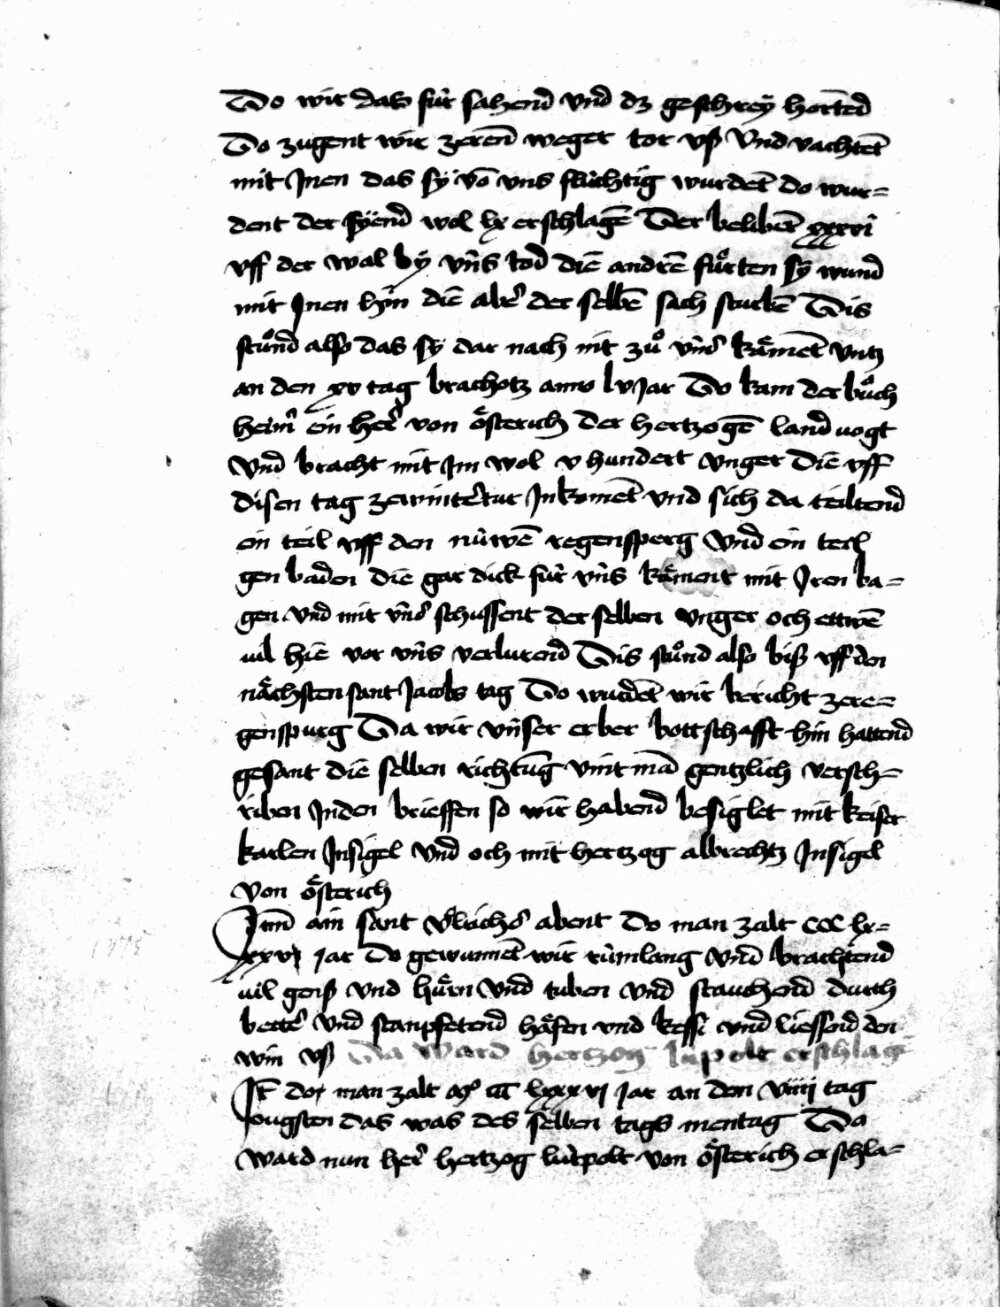 Do wir das für sahend vnd dz geschreÿ hortēd
Do zugent wir zerēn weger tor vß Vnd vachtēt
mit Jnen das sy vō vns flüchtig wurdēt do wur=
dent der fyend wol lx erschlagē Der belibēt xxxvi
vff der wal bÿ vns tod Die andrē fuͦrten sÿ wund
mit Jnen hin die aber der selbē sach sturbē Dis
stuͦnd also das sy dar nach nit zuͦ vns kāmēt vntz
an den xv tag brachotz anno lv Jar Do kam der buͦch
heim ein her von oͤsterich der hertzogē land uogt
Vnd bracht mit Jm wol v hundert vnger Die vff
disen tag ze wintertur Jnkomēt vnd sich da teiltend
ein teil vff den nüwē regensperg Vnd ein teil
gen baden die gar dick für vns kament mit Jren ba=
gen vnd mit vns schussent der selben vnger och ettwē
uil hie vor vns verlurend Dis stuͦnd also biß vff den
naͤchsten sant Jacobs tag Do wurdēt wir bericht ze re=
genspurg Da wir vnser erber bottschafft hin hattend
gesant die selben richtūg vint mā gentzlich versch=
riben Jnden brieffen so wir habend besiglet mit keiser
karlen Jnsigel Vnd och mit hertzog albrechtz Jnsigel
von oͤsterich
Jtm ain sant vlrichs abent Do man zalt CCC lx=
xxvj jar do gewunnēt wir rümlang vnd brachtend
uil geiß vnd huͤrn vnd tuben vnd stauchend durch
bette vnd stanpfetend haͤfen vnd kessi vnd liessend den
win vß Da Ward hertzog lüpolt erschlag
Jt do man zalt M CCC lxxxvj jar an den viiij tag
ougsten das was des selben tags mentag Da
ward nun her hertzog lütpolt von oͤsterich erschla=